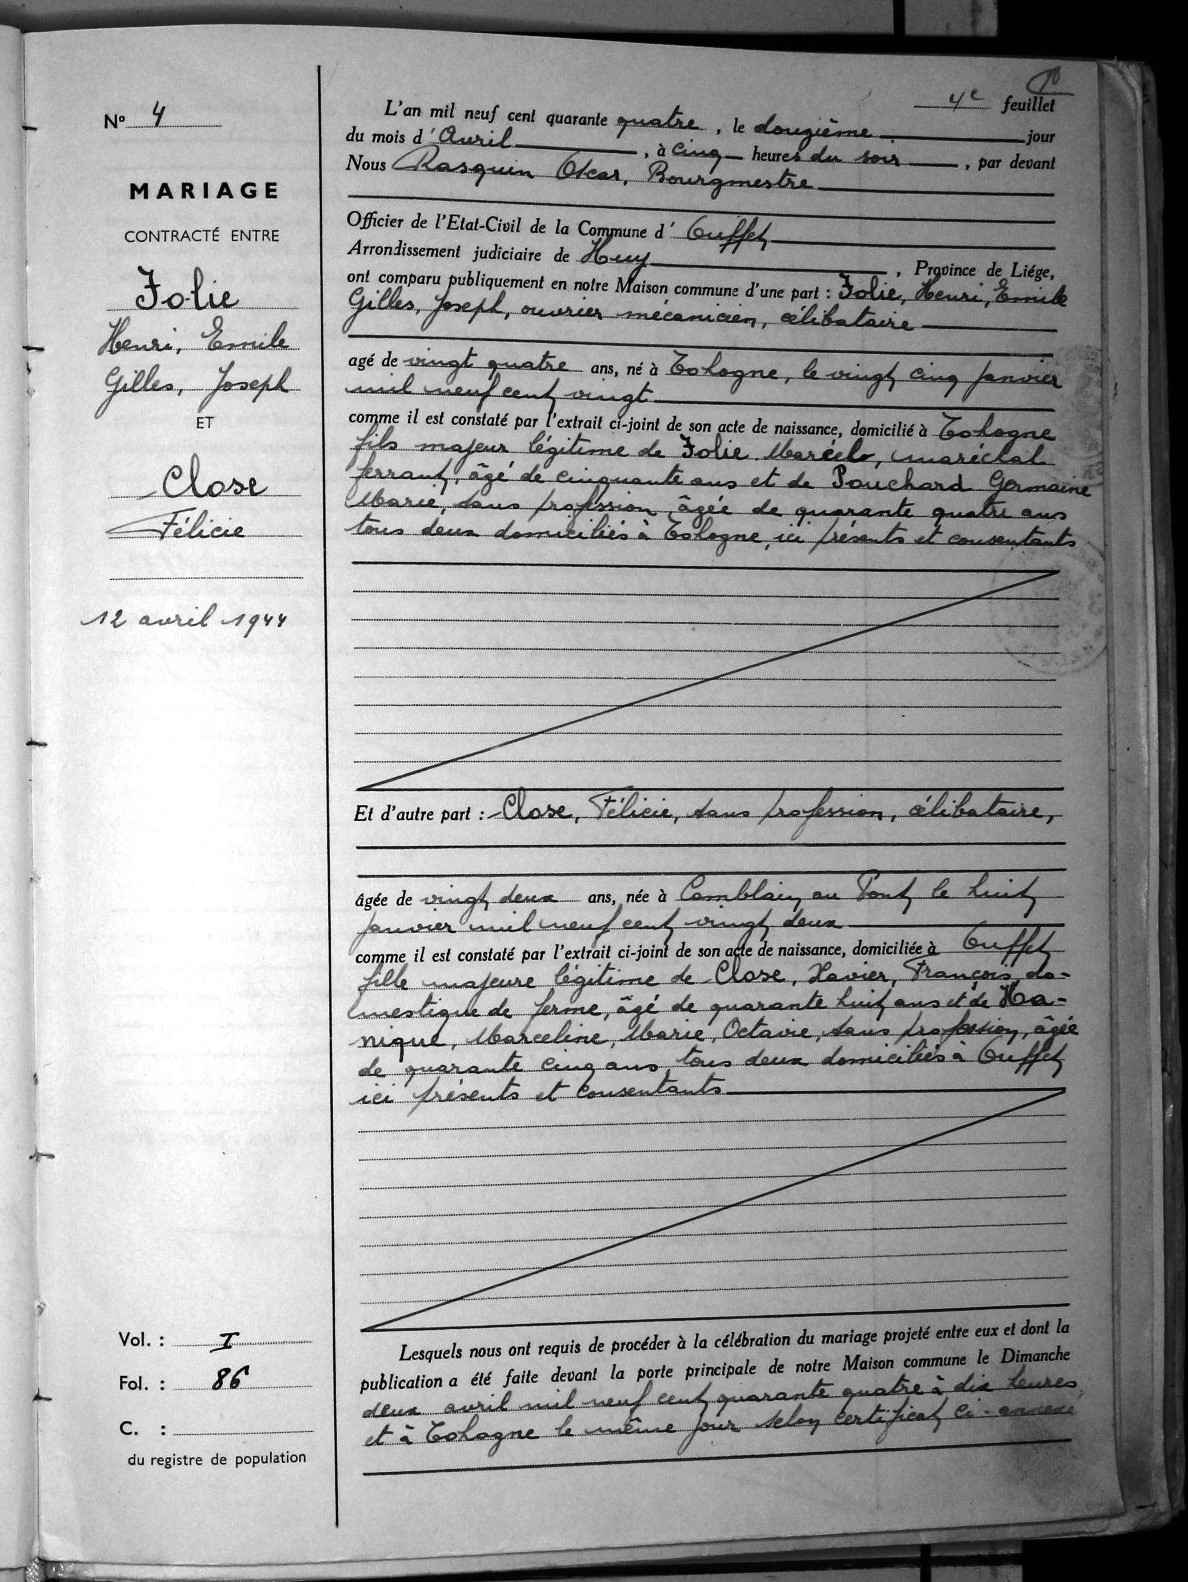 4e feuillet
N° 4
MARIAGE
CONTRACTÉ ENTRE
Folie
Henri, Emile
Gilles, Joseph
ET
Close
Félicie
12 avril 1944
Vol. : I
Fol. : 86
C. :
du registre de population
L'an mil neuf cent quarante quatre, le douzième jour
du mois d'Avril, à cinq heures du soir, par devant
Nous Rasquin Oscar, Bourgmestre
Officier de l'Etat-Civil de la Commune d'Ouffet
Arrondissement judiciaire de Huy, Province de Liége,
ont comparu publiquement en notre Maison commune d'une part : Folie, Henri, Emile
Gilles, Joseph, ouvrier mécanicien, célibataire
agé de vingt quatre ans, né à Tohogne, le vingt cinq janvier
mil neuf cent vingt
comme il est constaté par l'extrait ci-joint de son acte de naissance, domicilié à Tohogne
fils majeur légitime de Folie Marcel, maréchal
ferrant, âgé de cinquante ans et de Pouchard Germaine
Marie, sans profession, âgée de quarante quatre ans
tous deux domiciliés à Tohogne, ici présents et consentants
Et d'autre part : Close, Félicie, sans profession, célibataire,
âgée de vingt deux ans, née à Comblain au Pont le huit
janvier mil neuf cent vingt deux
comme il est constaté par l'extrait ci-joint de son acte de naissance, domiciliée à Ouffet
fille majeure légitime de Close, Xavier, François, do-
mestique de ferme, âgé de quarante huit ans et de Ha-
nique, Marceline, Marie, Octavie, sans profession, âgée
de quarante cinq ans, tous deux domiciliés à Ouffet
ici présents et consentants
Lesquels nous ont requis de procéder à la célébration du mariage projeté entre eux et dont la
publication a été faite devant la porte principale de notre Maison commune le Dimanche
deux avril mil neuf cent quarante quatre à dix heures,
et à Tohogne le même jour selon certificat ci-annexé